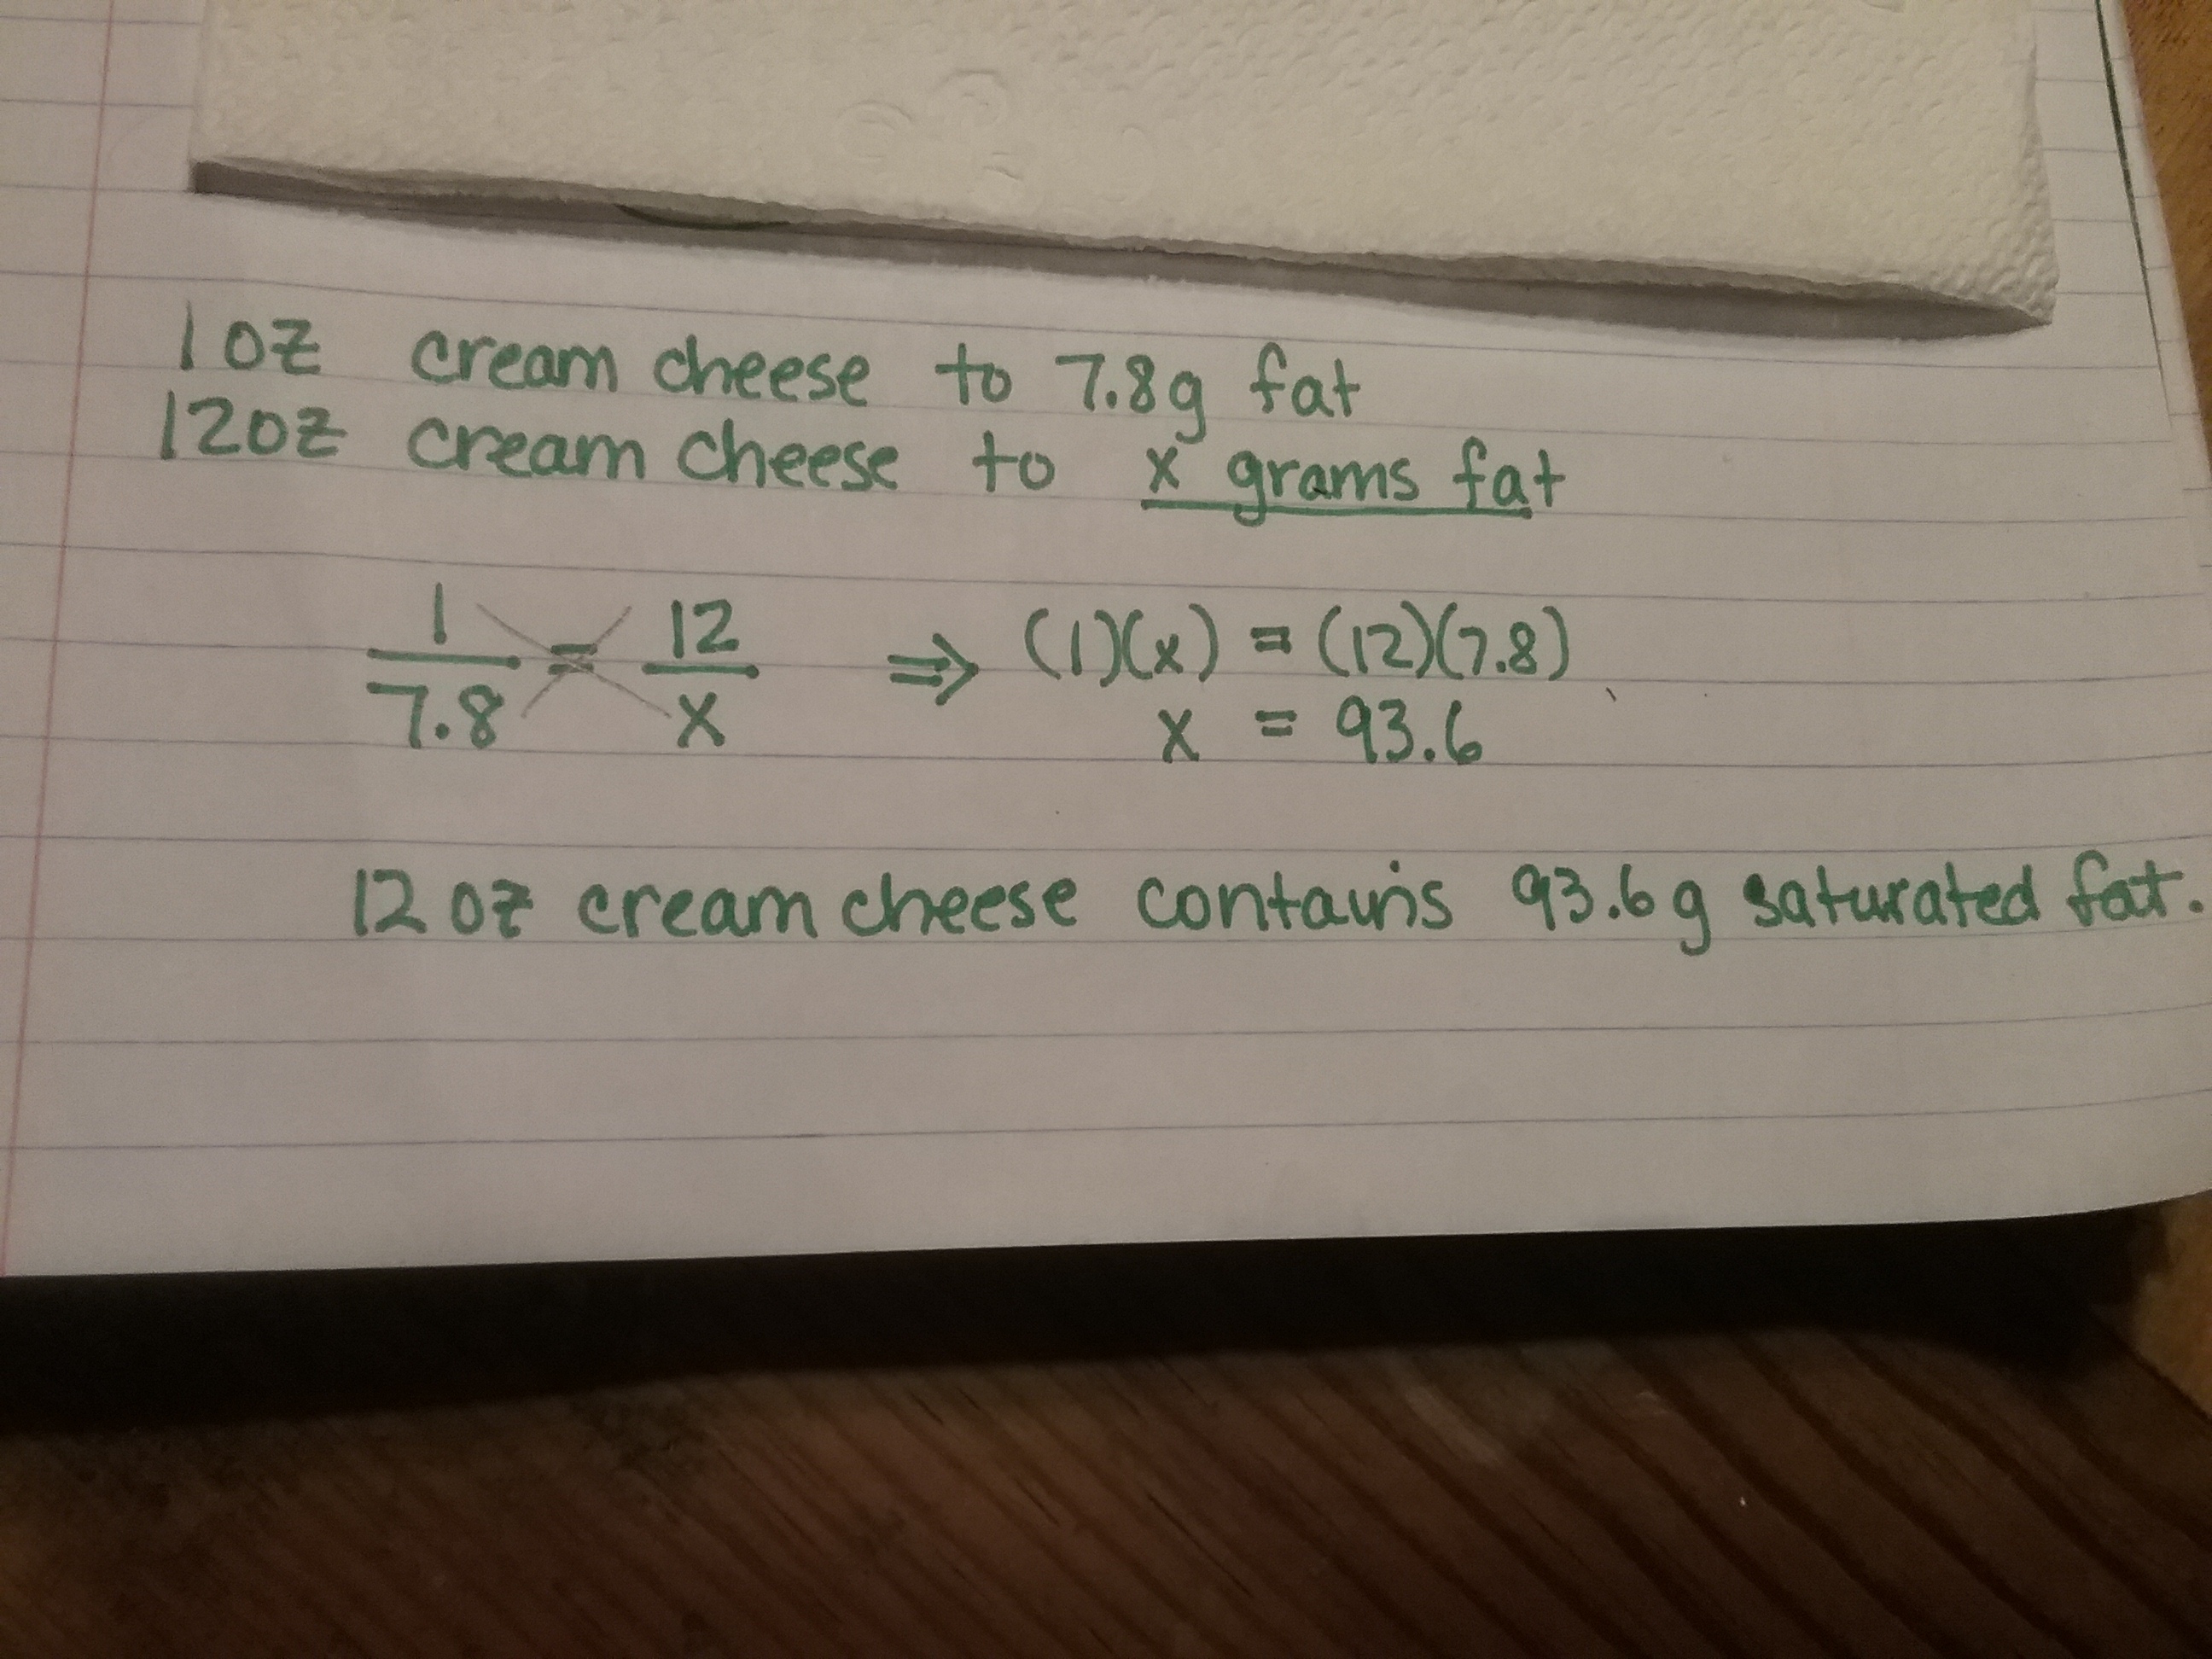 1 oz cream cheese to 7.8g fat
12oz cream cheese to x grams fat
1/7.8 = 12/x ⇒ (1)(x) = (12)(7.8)
x = 93.6
12 oz cream cheese contains 93.6g saturated fat.